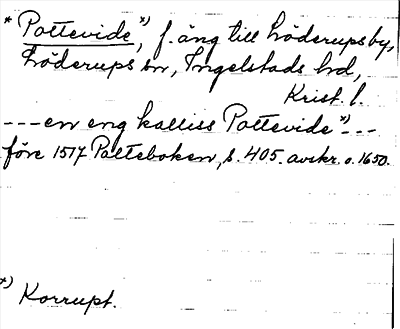 * Pottevide*), f. äng till Löderups by,
Löderups sn, Ingelstads hd,
Krist. l.
---en eng kalliss Pottevide*)---
före 1517 Palteboken, s. 405. avskr. o. 1650.
*) Korrupt.